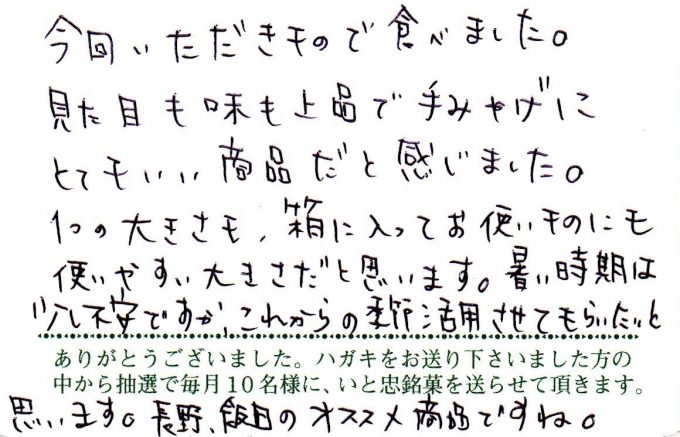 今回いただきもので食べました。
見た目も味も上品で手みやげに
とてもいい商品だと感じました。
1つの大きさも、箱に入ってお使いものにも
使いやすい大きさだと思います。暑い時期は
少し不安ですが、これからの季節活用させてもらいたいと
ありがとうございました。ハガキをお送り下さいました方の
中から抽選で毎月10名様に、いと忠銘菓を送らせて頂きます。
思います。長野、飯田のオススメ商品ですね。